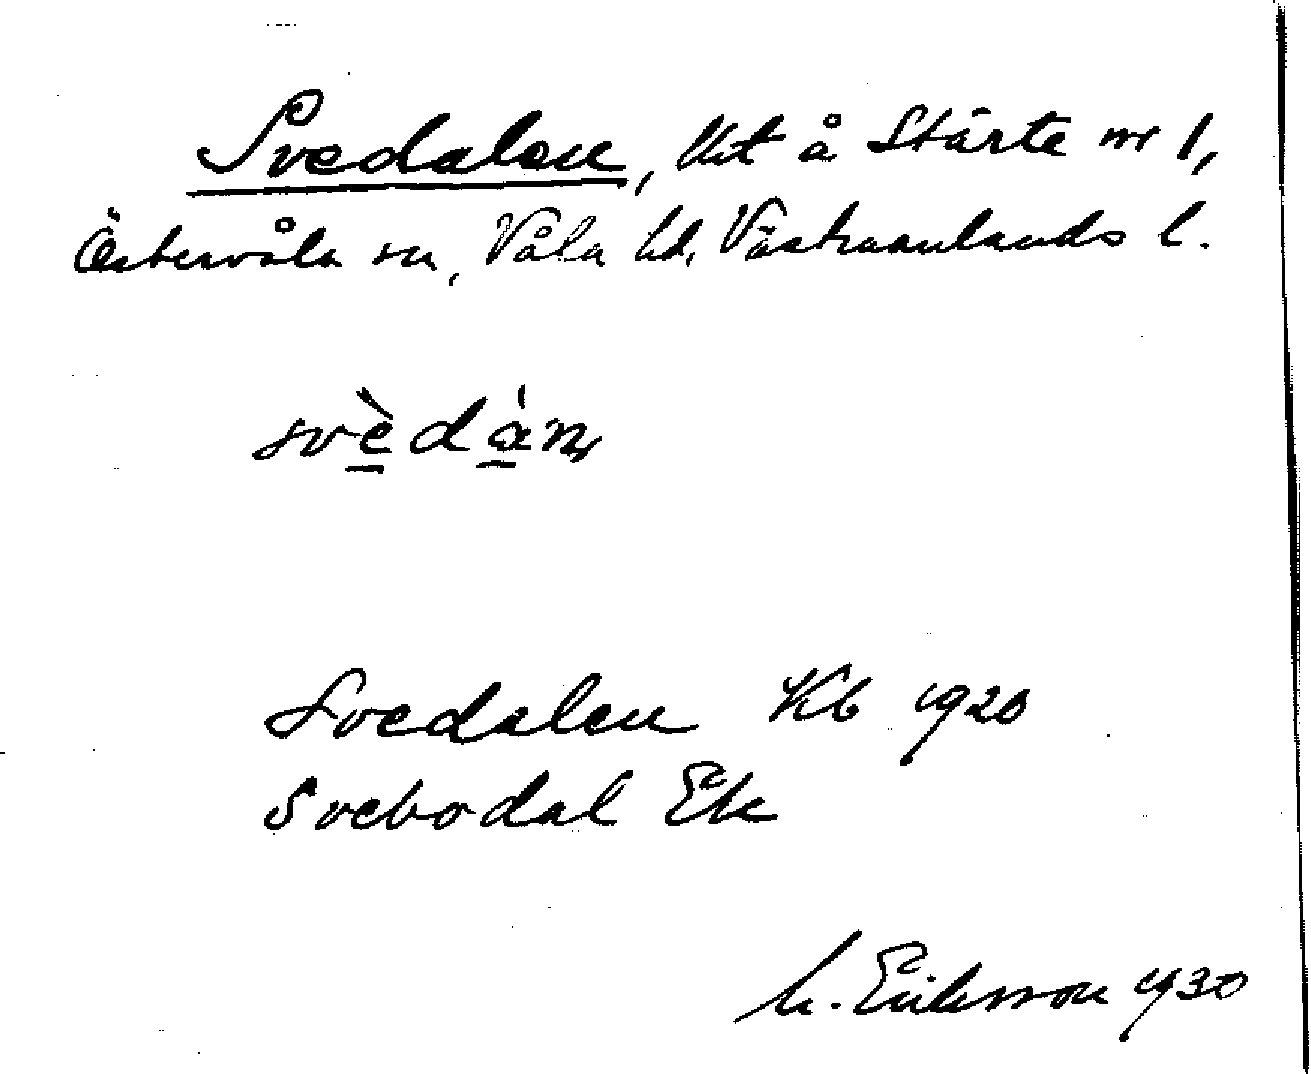 Svedalen, lht å Stärte nr 1,
Östervåla sn, Våla hd, Västmanlands l.
svèdàn
Svedalen Kb 1920
Svebodal Ek
M. Eriksson 1930